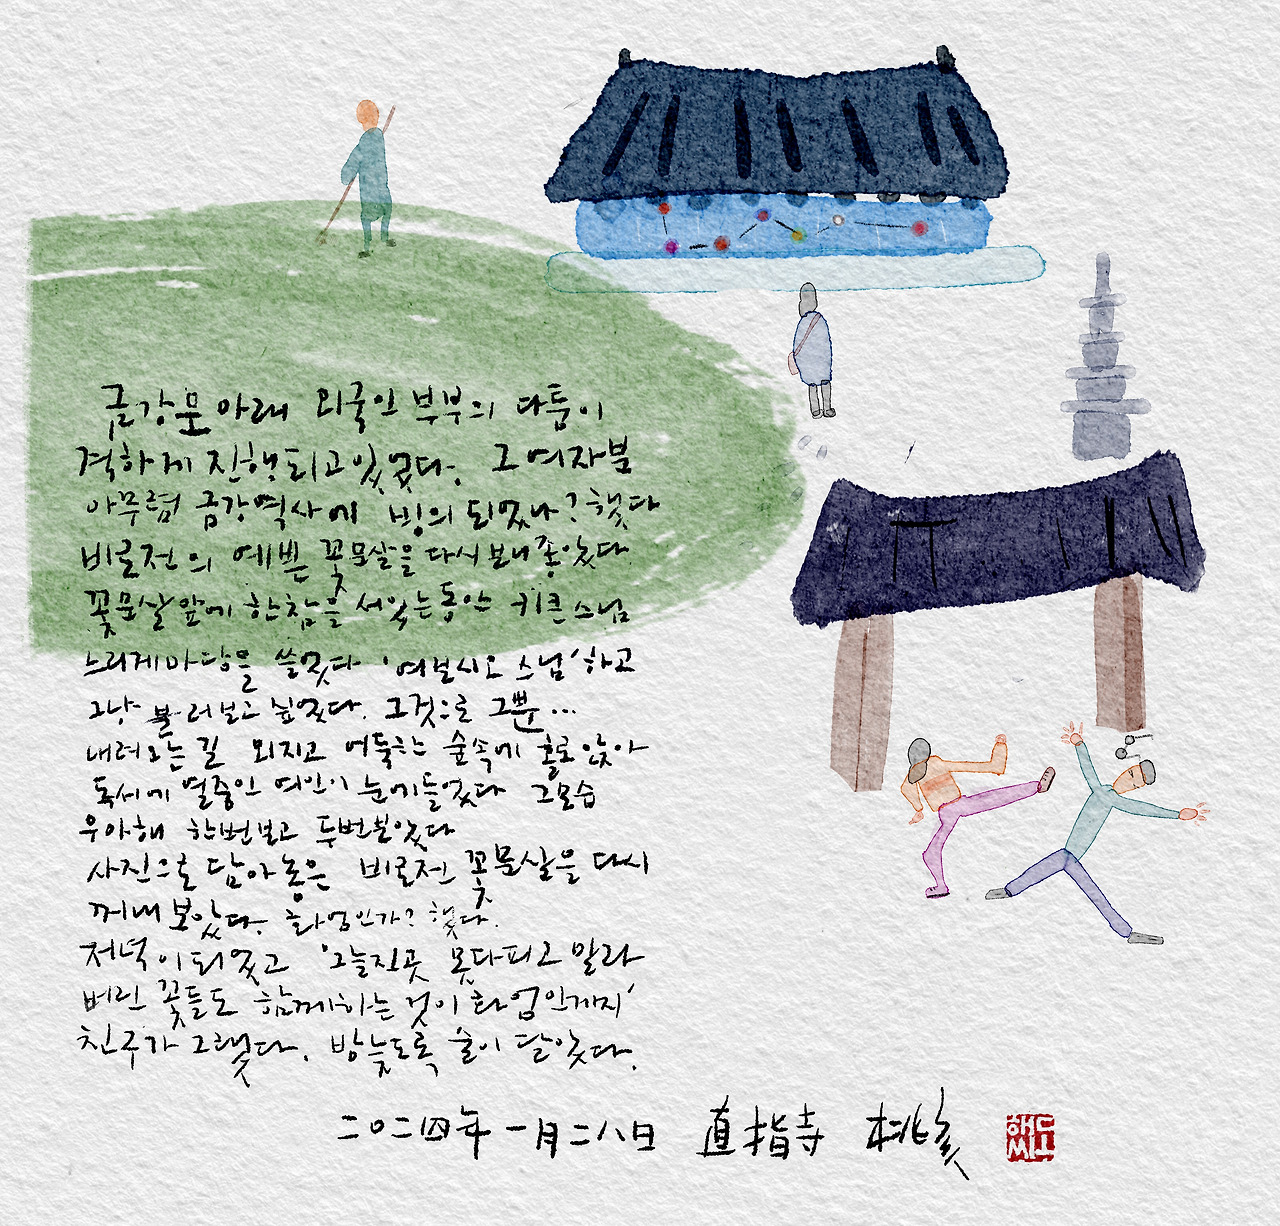 금강문 아래 외국인 부부의 다툼이
격하게 진행되고 있었다. 그 여자분
아무렴 금강역사에 빙의 되었나? 했다
비로전의 예쁜 꽃문살을 다시 보니 좋았다
꽃문살 앞에 한참을 서있는 동안 키큰 스님
느리게 마당을 쓸었다 '여보시오 스님' 하고
그냥 불러보고 싶었다. 그것으로 그뿐...
내려오는 길 외지고 어둑하는 숲속에 홀로 앉아
독서에 열중인 여인이 눈에 들었다 그모습
우아해 한번보고 두번 보았다
사진으로 담아놓은 비로전 꽃문살을 다시
꺼내 보았다. 화엄인가? 했다.
저녁이 되었고 '오늘 진 꽃 못다피고 말라
버린 꽃들도 함께하는 것이 화엄인게지'
친구가 그랬다. 밤늦도록 술이 달았다.
二〇二四年 一月二八日 直指寺